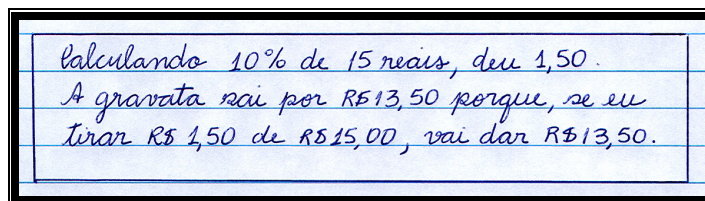 Calculando 10% de 15 reais, deu 1,50.
A gravata sai por R$13,50 porque, se eu
tirar R$ 1,50 de R$15,00, vai dar R$13,50.